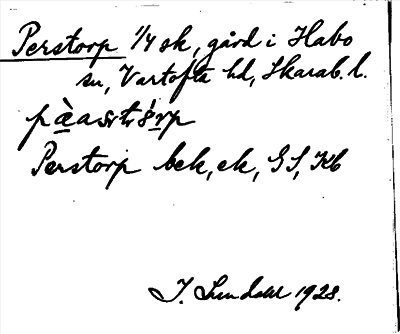 Perstorp 1/4 sk, gård i Habo
sn, Vartofta hd, Skarab. l.
Perstorp bek, ek, GS, Kb
I. Lundahl 1928.